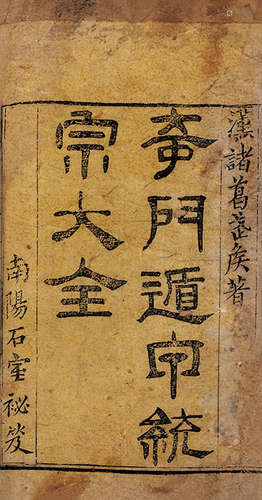 漢諸葛武侯著
奇門遁甲統
宗大全
南陽石室祕笈